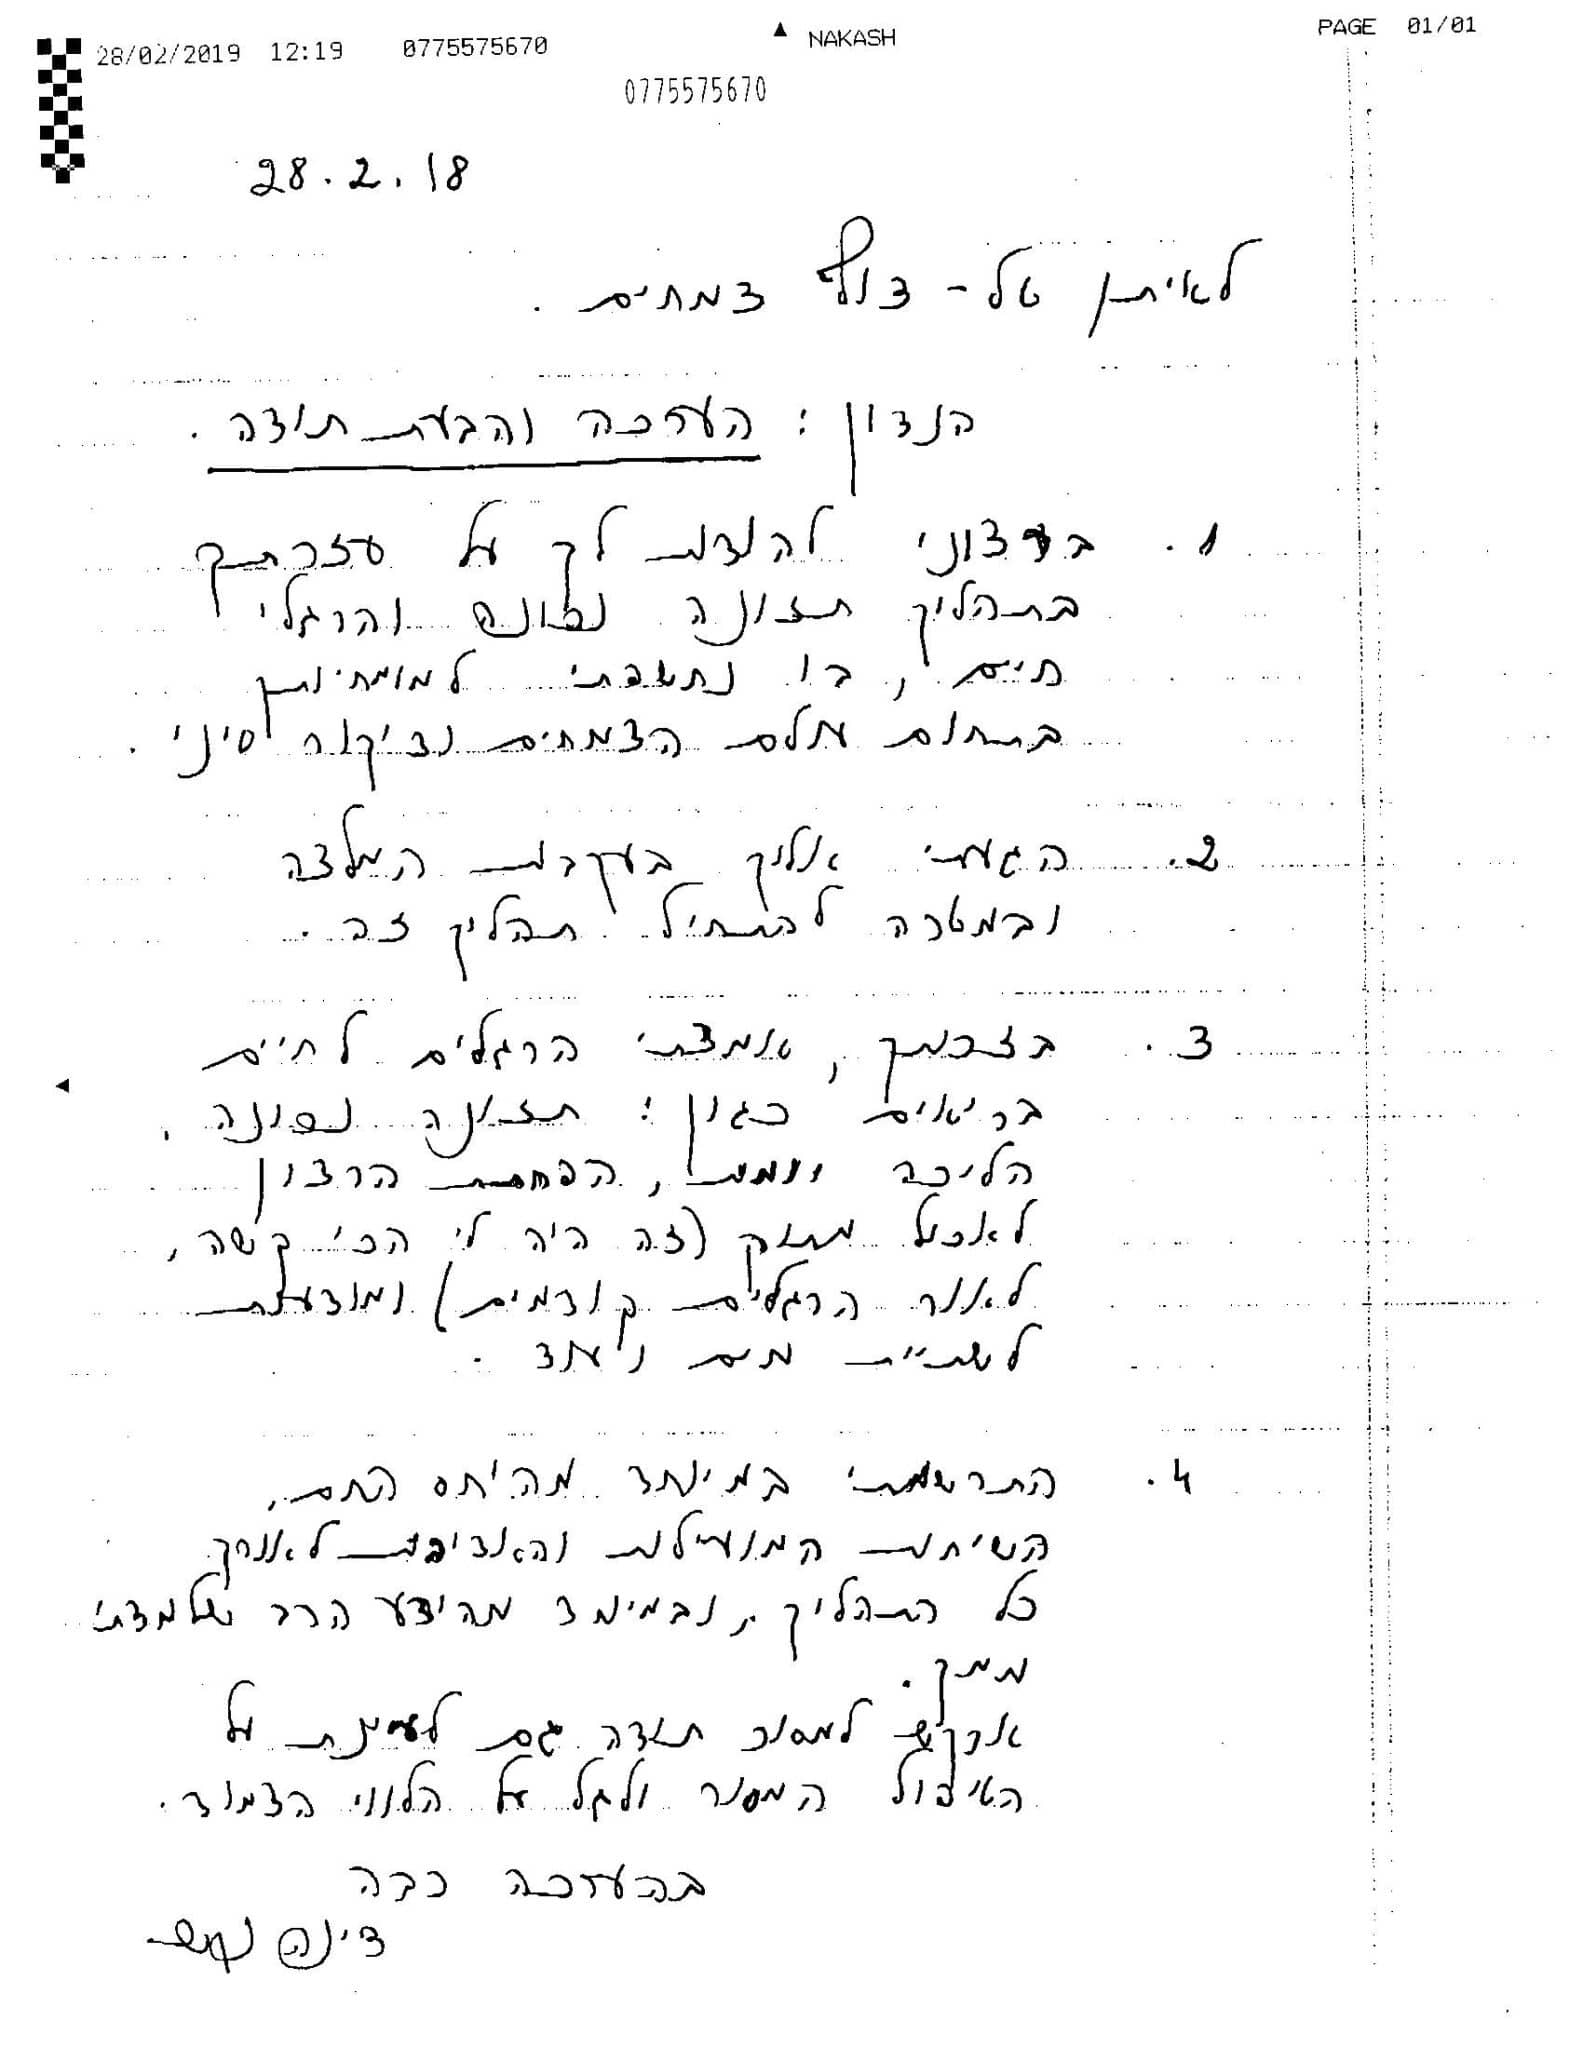 28/02/2019 12:19 0775575670 NAKASH PAGE 01/01
0775575670
28.2.18
לאיתן טל - צמחים.
הנדון: הערכה והבעת תודה.
1. ברצוני להודות לך על עזרתך
בתהליך תזונה נכונה והרגלי
חיים, בו נחשפתי למומחיותך
בתחום עולם הצמחים ודיקור סיני.
2. הגעתי אליך בעקבות המלצה
ובמטרה להתחיל תהליך זה.
3. בזכותך, אמצתי הרגלים לחיים
בריאים כגון: תזונה נכונה,
הליכה יומית, הפחתת הרצון
לאכול מתוק (זה היה לי הכי קשה,
לאור הרגלים קודמים) ומודעות
לשתיית מים ועוד.
4. התרשמתי במיוחד מהיחס החם,
השיחות המועילות והאדיבות לאורך
כל התהליך, ובמיוחד מהידע הרב שלמדתי
ממך.
אבקש למסור תודה גם לעינת על
הטיפול המסור ולגל על הלווי הצמוד.
בהערכה רבה
דינה נקש